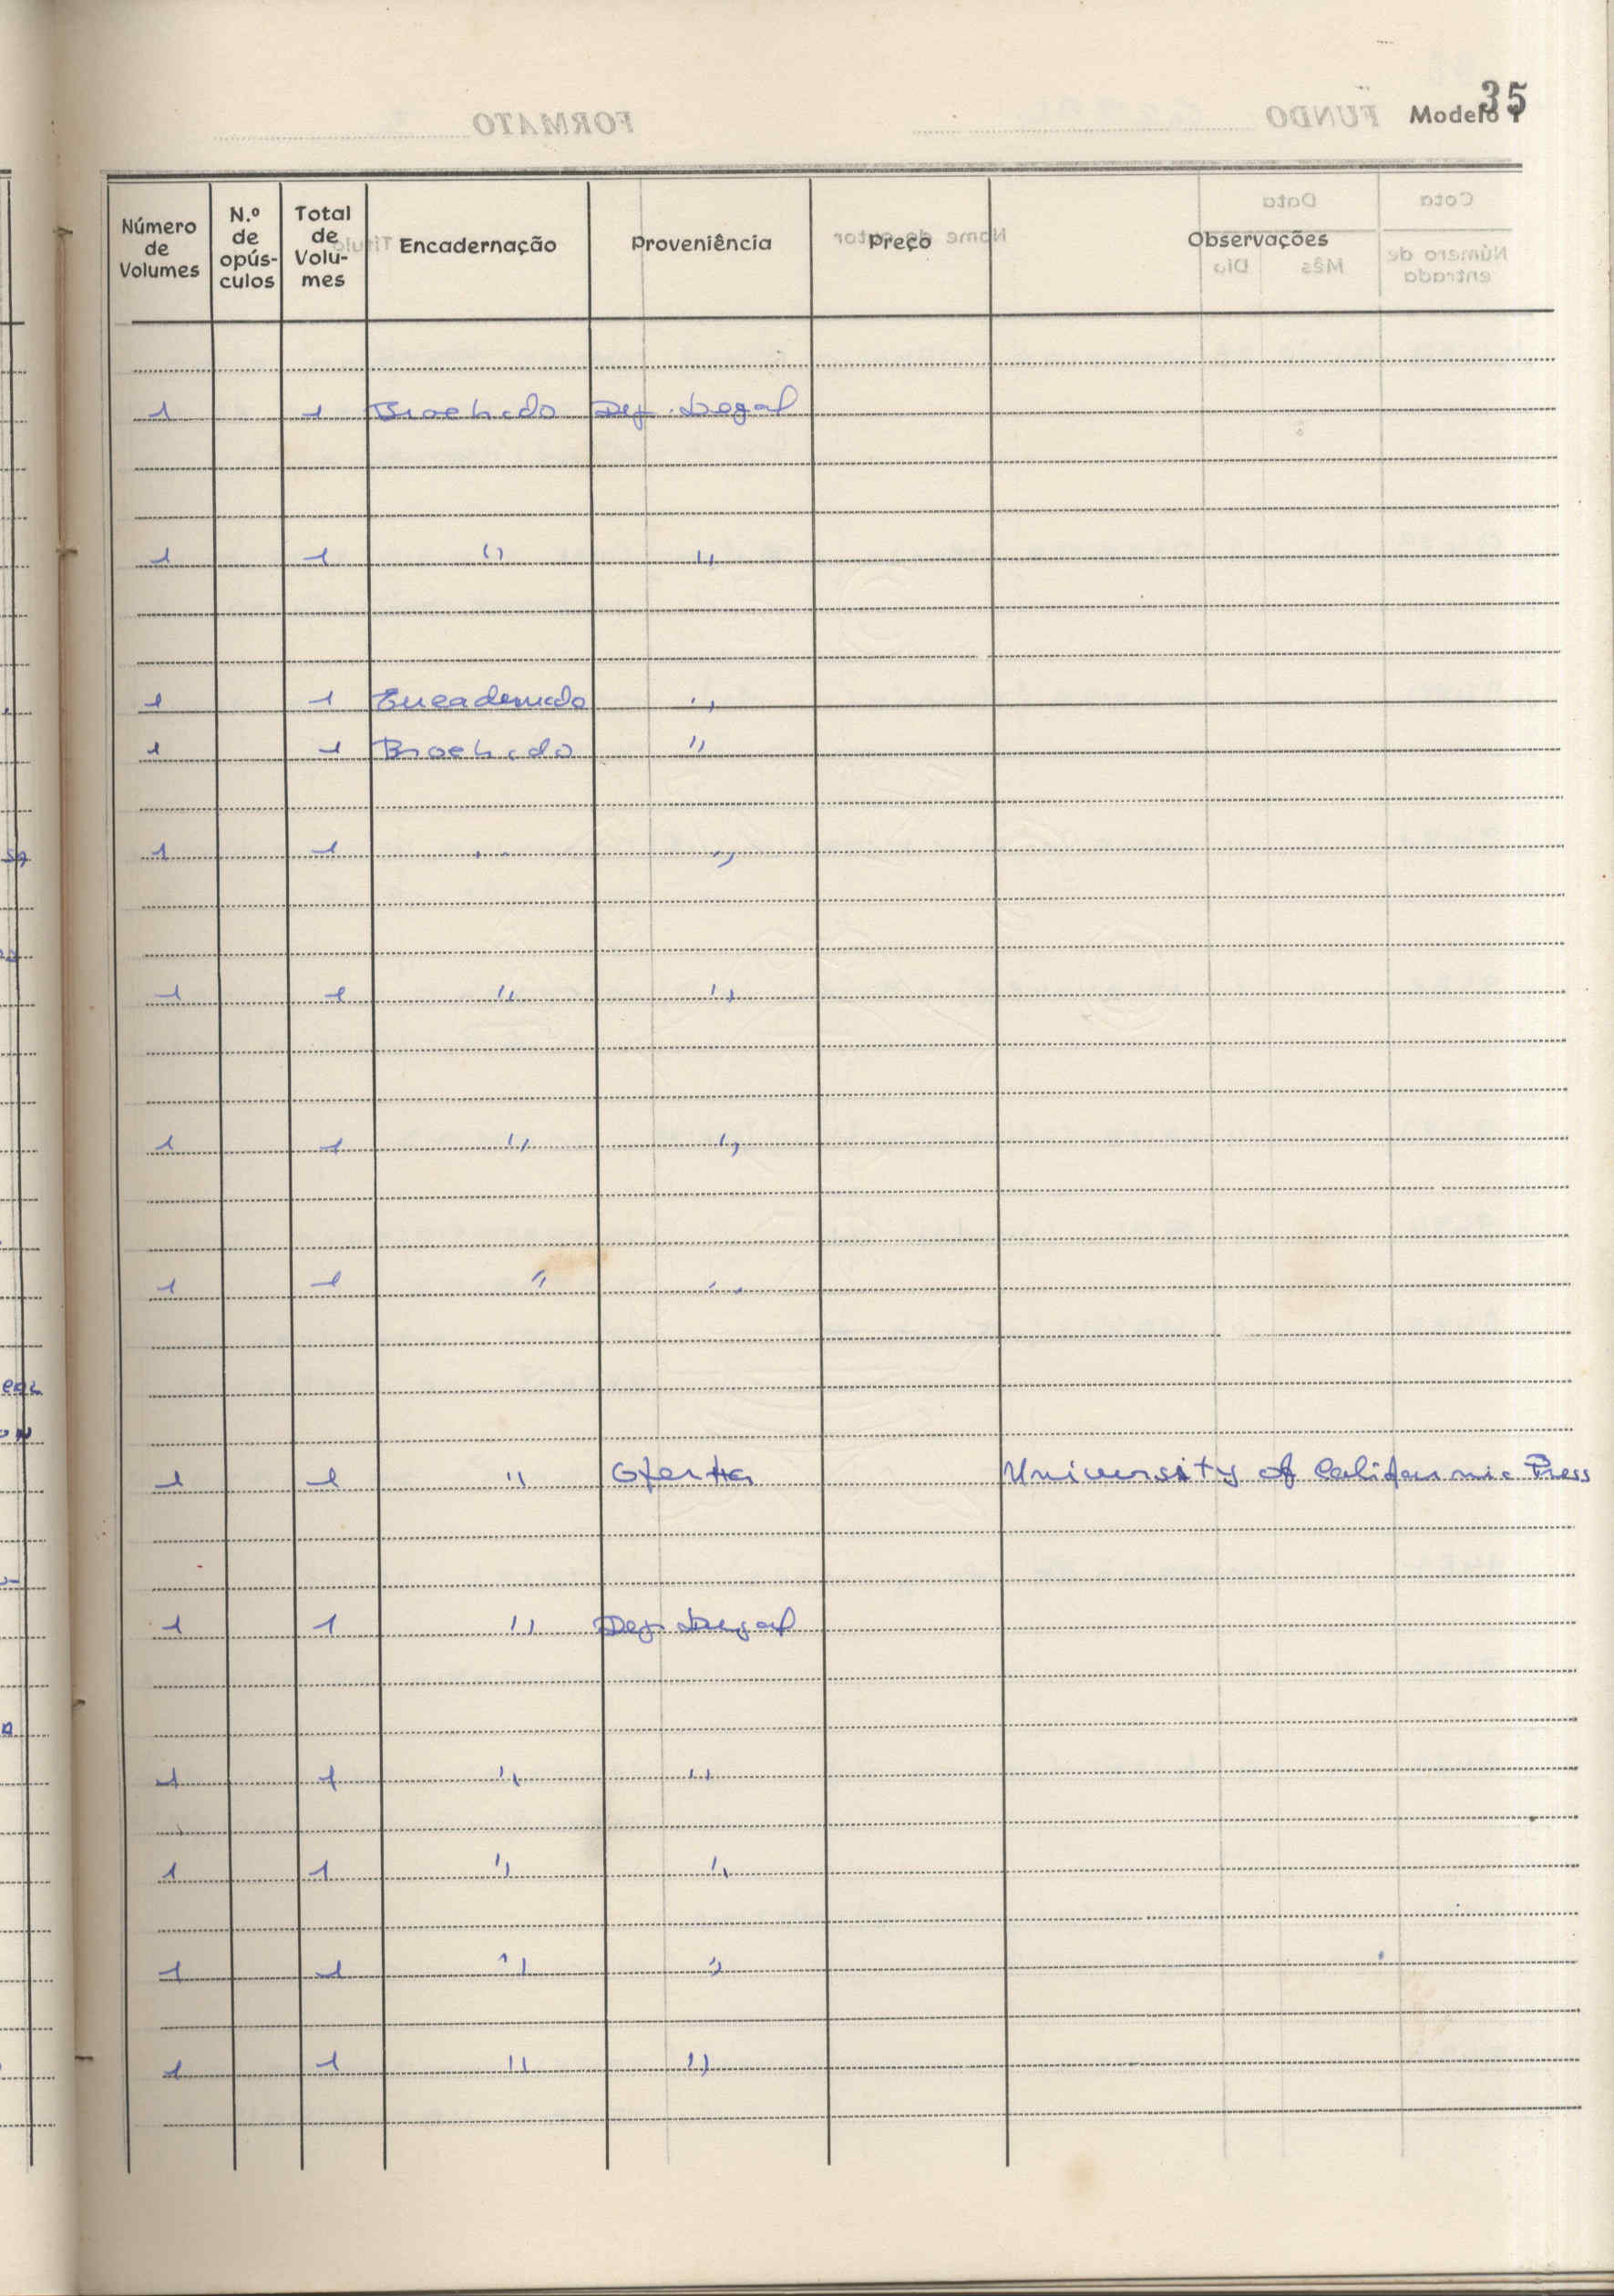 35
Modelo 1
Número de Volumes | N.º de opús-culos | Total de Volu-mes | Encadernação | Proveniência | Preço | Observações
1 | | 1 | Brochado | Dep. Legal
1 | | 1 | " | "
1 | | 1 | Encadernado | "
1 | | 1 | Brochado | "
1 | | 1 | " | "
1 | | 1 | " | "
1 | | 1 | " | "
1 | | 1 | " | "
1 | | 1 | " | Oferta | | University of California Press
1 | | 1 | " | Dep. Legal
1 | | 1 | " | "
1 | | 1 | " | "
1 | | 1 | " | "
1 | | 1 | " | "